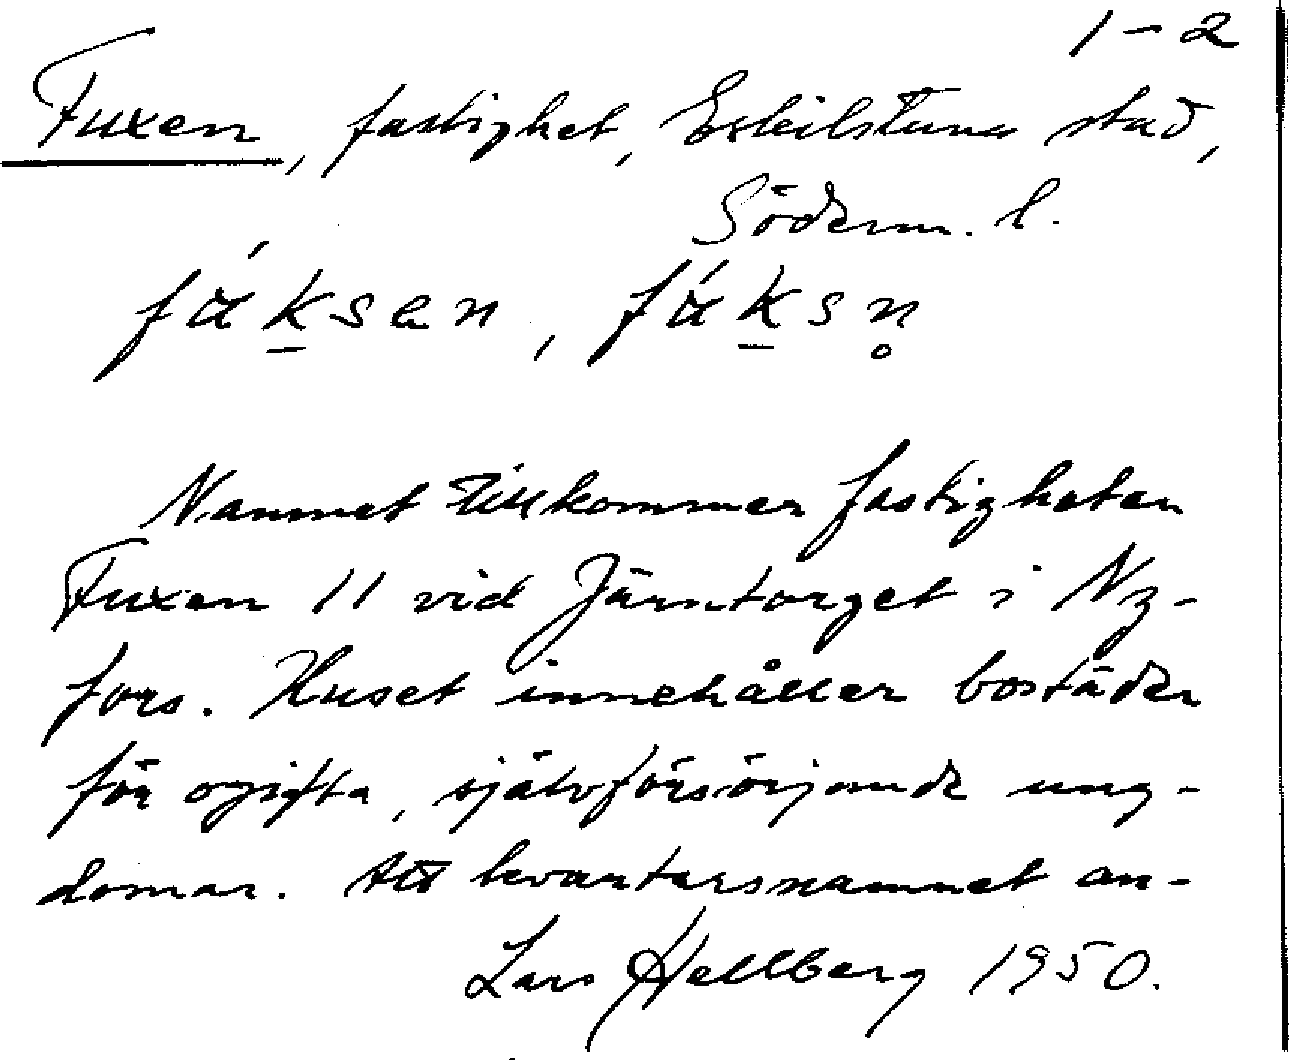 1-2
Fuxen, fastighet, Eskilstuna stad,
Söderm. l.
fák̠san, fák̠sn̥
Namnet tillkommer fastigheten
Fuxen 11 vid Järntorget i Ny-
fors. Huset innehåller bostäder
för ogifta, självförsörjande ung-
domar. Att kvartersnamnet an-
Lars Hellberg 1950.